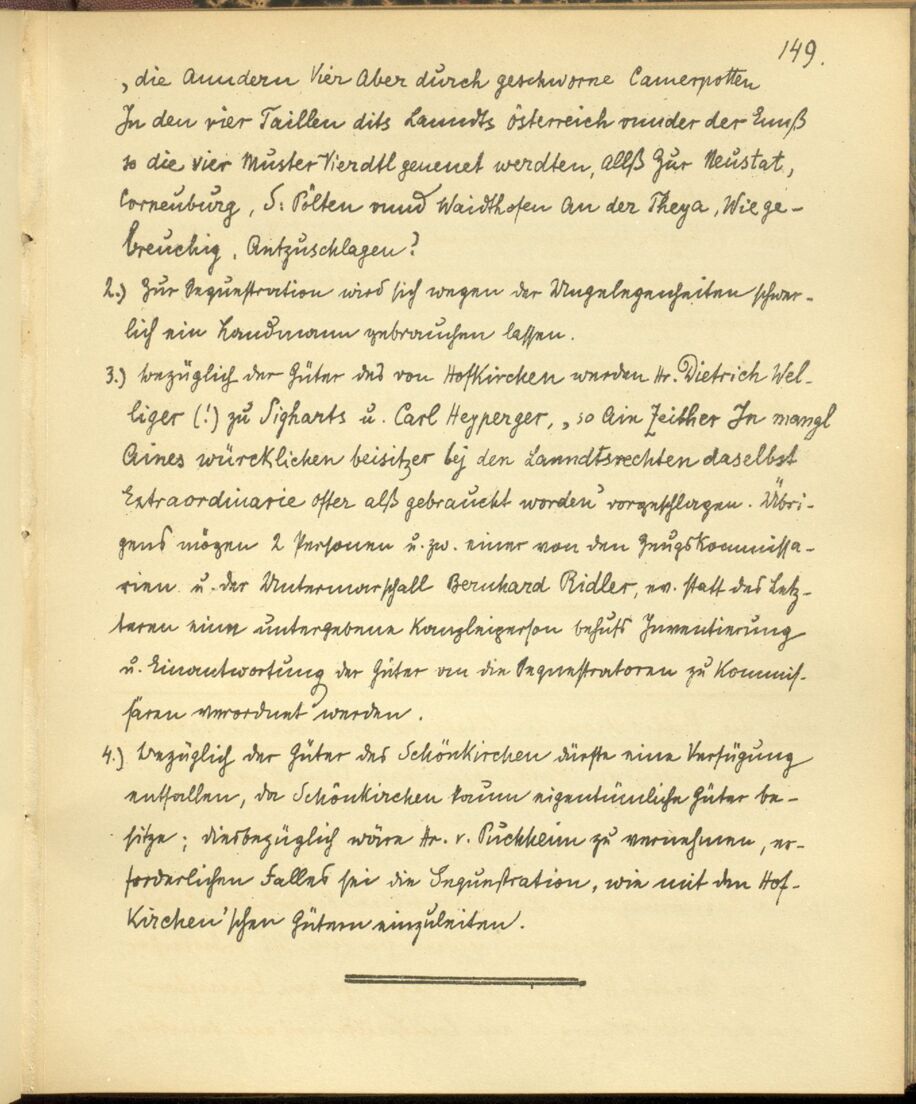 149.
„die Anndern Vier Aber durch geschworne Camerpotten
In den vier Taillen dits Lanndts österreich vnnder der Ennß
so die vier Muster Vierdtl genenet werdten, Allß Zur Neustat,
Corneuburg, S: Pölten vnnd Waidthofen An der Theya, Wie ge-
breuchig, Antzuschlagen?
2.) Zur Sequestration wird sich wegen der Ungelegenheiten schwer-
lich ein Landmann gebrauchen lassen.
3.) bezüglich der Güter des von Hofkirchen werden Hr. Dietrich Wel-
liger (!) zu Sigharts u. Carl Heyperger, „so Ain Zeither In mangl
Aines würcklichen beisitzer bej den Lanndtsrechten daselbst
Extraordinarie offter alß gebraucht worden" vorgeschlagen. Übri-
gens mögen 2 Personen u. zw. einer von den Zeugskommissa-
rien u. der Untermarschall Bernhard Ridler, ev. statt des Letz-
teren eine untergebene Kanzleiperson behufs Inventierung
u. Einantwortung der Güter an die Sequestratoren zu Kommis-
sären verordnet werden.
4.) bezüglich der Güter des Schönkirchen dürfte eine Verfügung
entfallen, da Schönkirchen kaum eigentümliche Güter be-
sitze; diesbezüglich wäre Hr. v. Puchheim zu vernehmen, er-
forderlichen Falles sei die Sequestration, wie mit den Hof-
kirchen'schen Gütern einzuleiten.